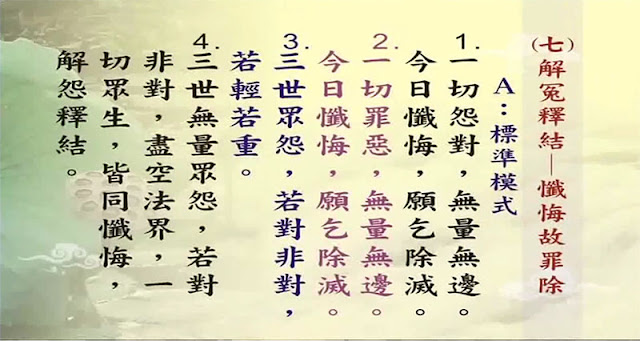 (七)解冤釋結—懺悔故罪除
A：標準模式
1.一切怨對，無量無邊。
今日懺悔，願乞除滅。
2.一切罪惡，無量無邊。
今日懺悔，願乞除滅。
3.三世眾怨，若對非對，
若輕若重。
4.三世無量眾怨，若對
非對，盡空法界，一
切眾生，皆同懺悔，
解怨釋結。